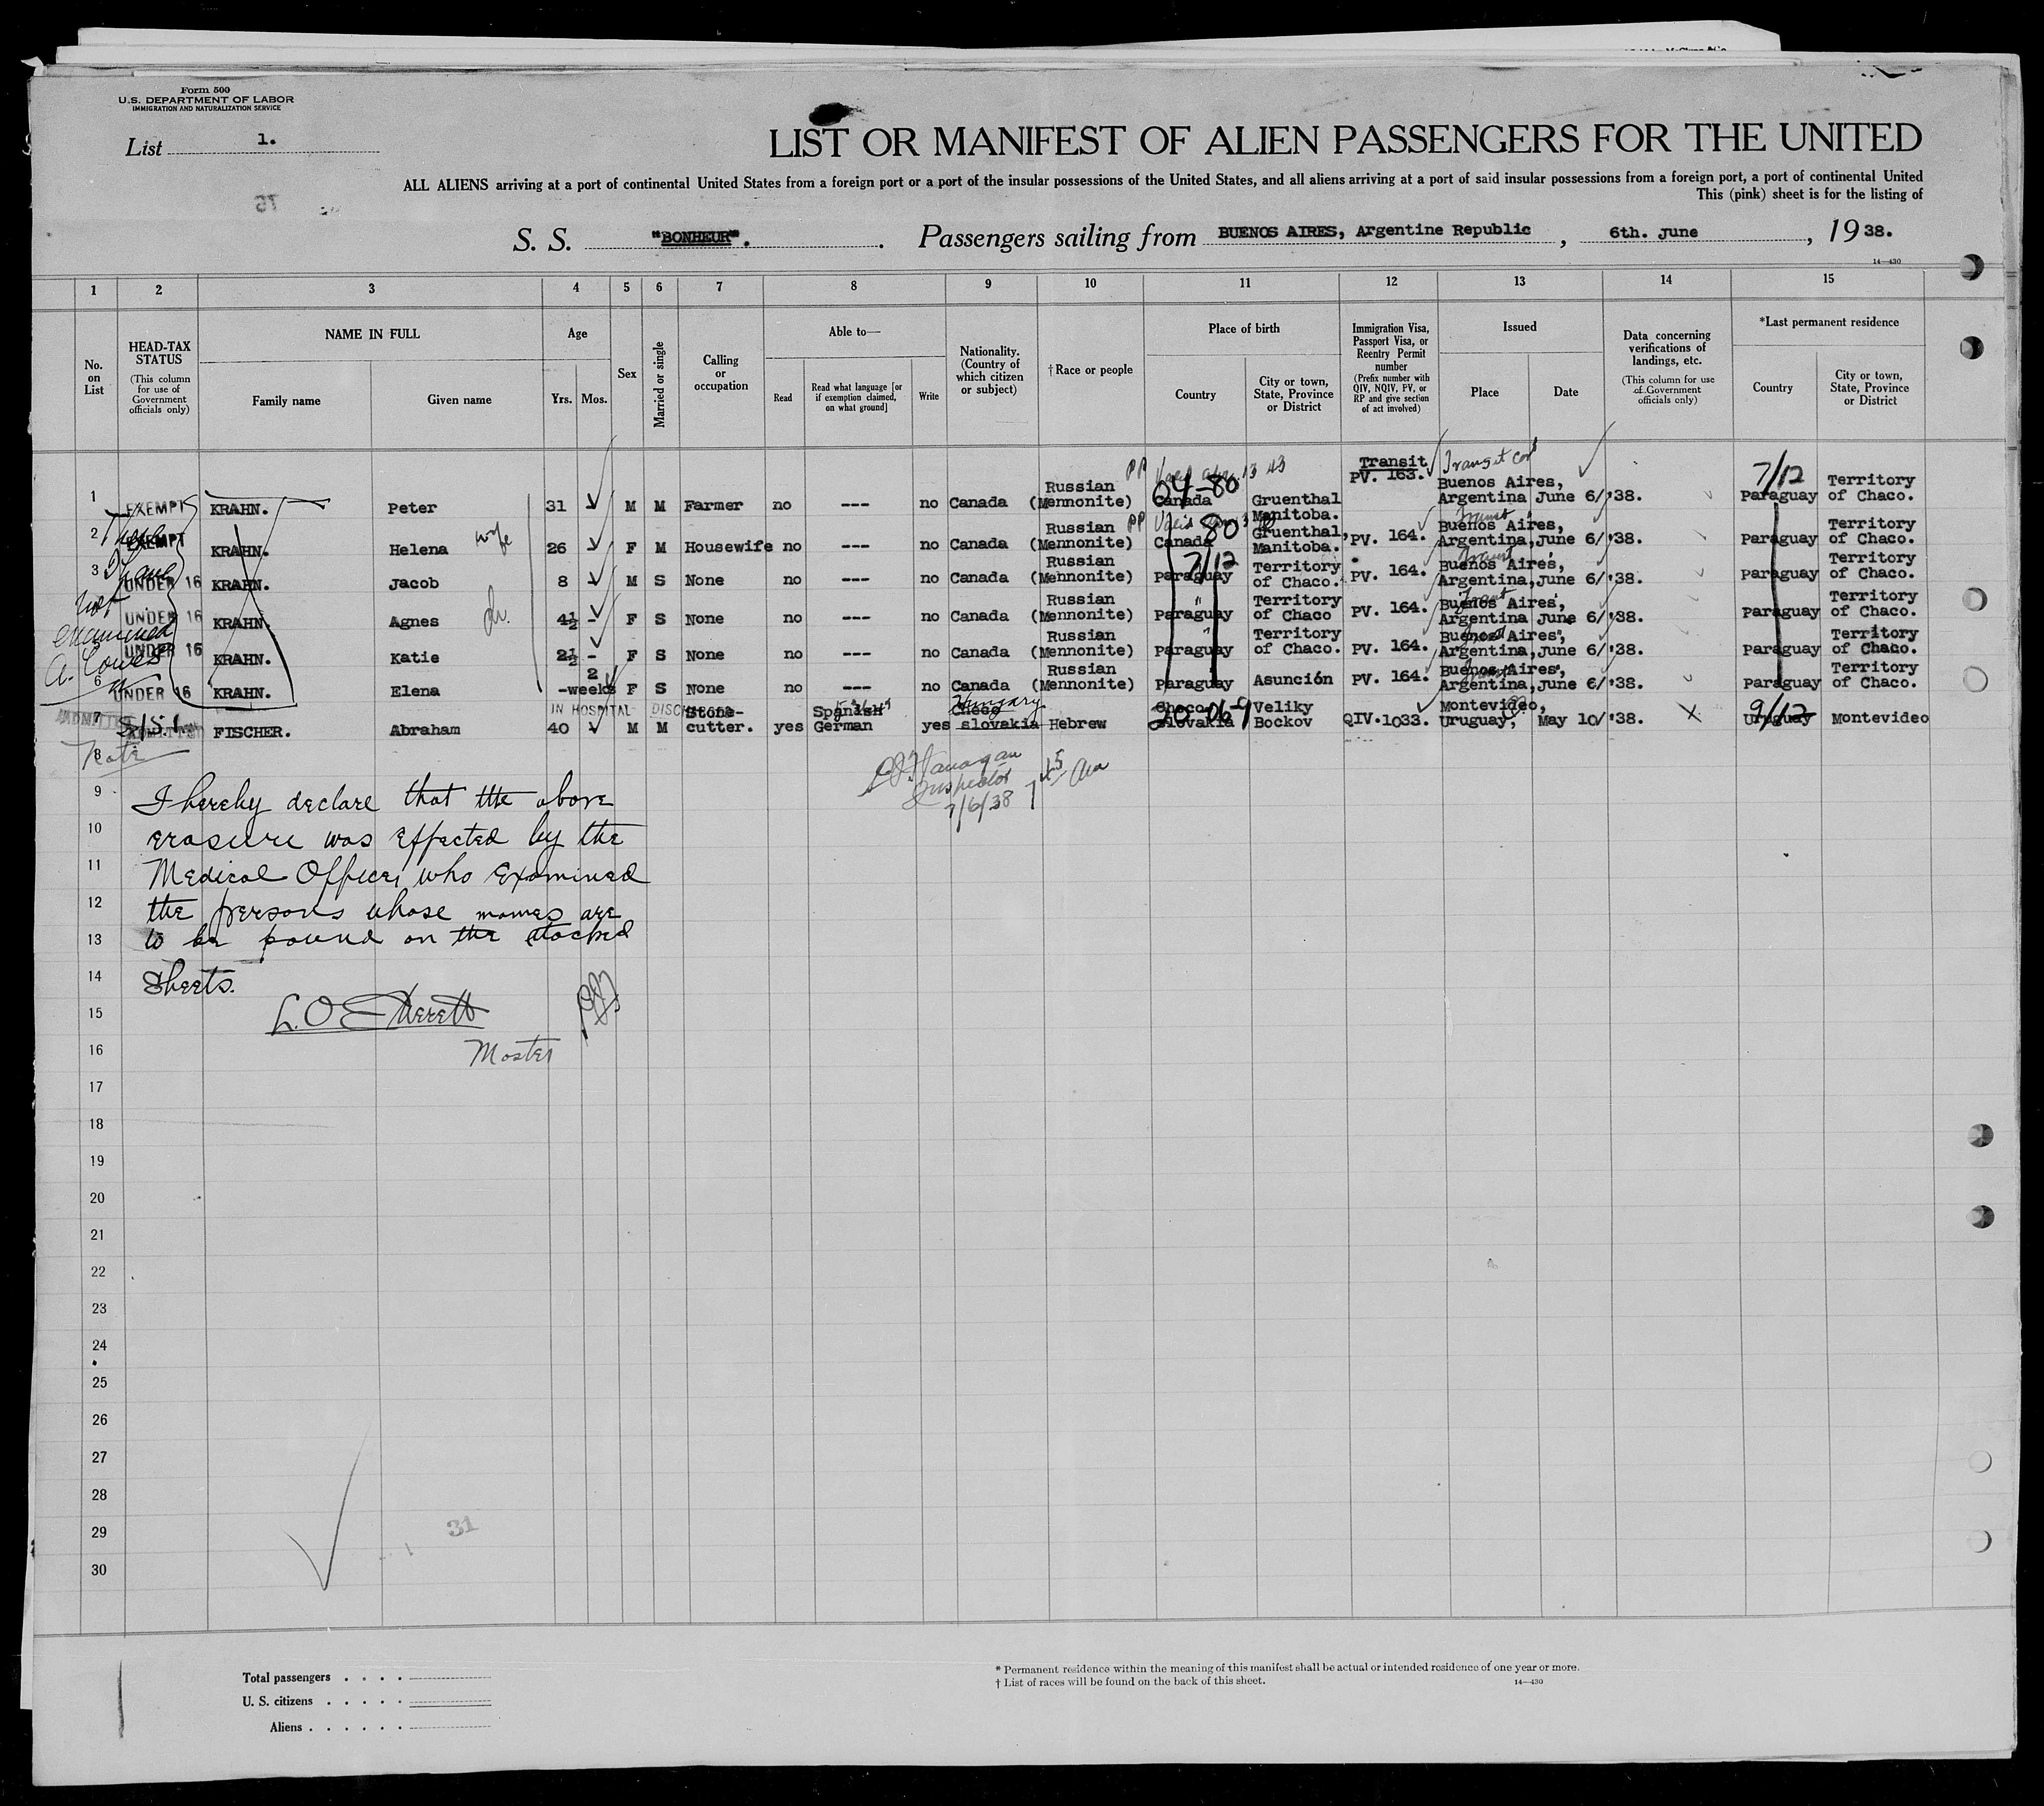 Form 500
U.S. DEPARTMENT OF LABOR
IMMIGRATION AND NATURALIZATION SERVICE
List 1.
LIST OR MANIFEST OF ALIEN PASSENGERS FOR THE UNITED
ALL ALIENS arriving at a port of continental United States from a foreign port or a port of the insular possessions of the United States, and all aliens arriving at a port of said insular possessions from a foreign port, a port of continental United
This (pink) sheet is for the listing of
S. S. "BONHEUR". Passengers sailing from BUENOS AIRES, Argentine Republic, 6th. June, 1938.
14—430
1 2 3 4 5 6 7 8 9 10 11 12 13 14 15
No. on List
HEAD-TAX STATUS (This column for use of Government officials only)
NAME IN FULL
Family name Given name
Age
Yrs. Mos.
Sex
Married or single
Calling or occupation
Able to—
Read Read what language [or if exemption claimed, on what ground] Write
Nationality. (Country of which citizen or subject)
†Race or people
Place of birth
Country City or town, State, Province or District
Immigration Visa, Passport Visa, or Reentry Permit number (Prefix number with QIV, NQIV, PV, or RP and give section of act involved)
Issued
Place Date
Data concerning verifications of landings, etc. (This column for use of Government officials only)
*Last permanent residence
Country City or town, State, Province or District
1 EXEMPT KRAHN. Peter 31 M M Farmer no --- no Canada Russian (Mennonite) Canada 04-80 Gruenthal Manitoba. Transit PV. 163. Buenos Aires, Argentina June 6/'38. 7/12 Paraguay Territory of Chaco.
2 EXEMPT KRAHN. Helena wife 26 F M Housewife no --- no Canada Russian (Mennonite) Canada 80 Gruenthal, Manitoba. PV. 164. Transit Buenos Aires, Argentina, June 6/'38. Paraguay Territory of Chaco.
3 UNDER 16 KRAHN. Jacob 8 M S None no --- no Canada Russian (Mennonite) Paraguay 7/12 Territory of Chaco. PV. 164. Transit Buenos Aires, Argentina, June 6/'38. Paraguay Territory of Chaco.
UNDER 16 KRAHN. Agnes 4½ - F S None no --- no Canada Russian (Mennonite) Paraguay Territory of Chaco PV. 164. Buenos Aires, Argentina June 6/'38. Paraguay Territory of Chaco.
UNDER 16 KRAHN. Katie 2½ - F S None no --- no Canada Russian (Mennonite) Paraguay Territory of Chaco. PV. 164. Buenos Aires, Argentina, June 6/'38. Paraguay Territory of Chaco.
6 UNDER 16 KRAHN. Elena 2 -weeks F S None no --- no Canada Russian (Mennonite) Paraguay Asunción PV. 164. Buenos Aires, Argentina, June 6/'38. Paraguay Territory of Chaco.
IN HOSPITAL
7 FISCHER. Abraham 40 M M Stone-cutter. yes Spanish German yes Hungary Checo slovakia Hebrew Checo Slovakia Veliky Bockov QIV.1033. Montevideo, Uruguay, May 10/'38. X 9/12 Uruguay Montevideo
These
I have
not
examined
Note
8
Inspector
7/6/38
9 I hereby declare that the above
10 erasure was effected by the
11 Medical Officer who examined
12 the persons whose names are
13 to be found on the attached
14 Sheets.
15 L. O. Everett
16 Master
17
18
19
20
21
22
23
24
25
26
27
28
29
30
31
Total passengers . . . .
U. S. citizens . . . . .
Aliens . . . . . .
* Permanent residence within the meaning of this manifest shall be actual or intended residence of one year or more.
† List of races will be found on the back of this sheet.
14—430